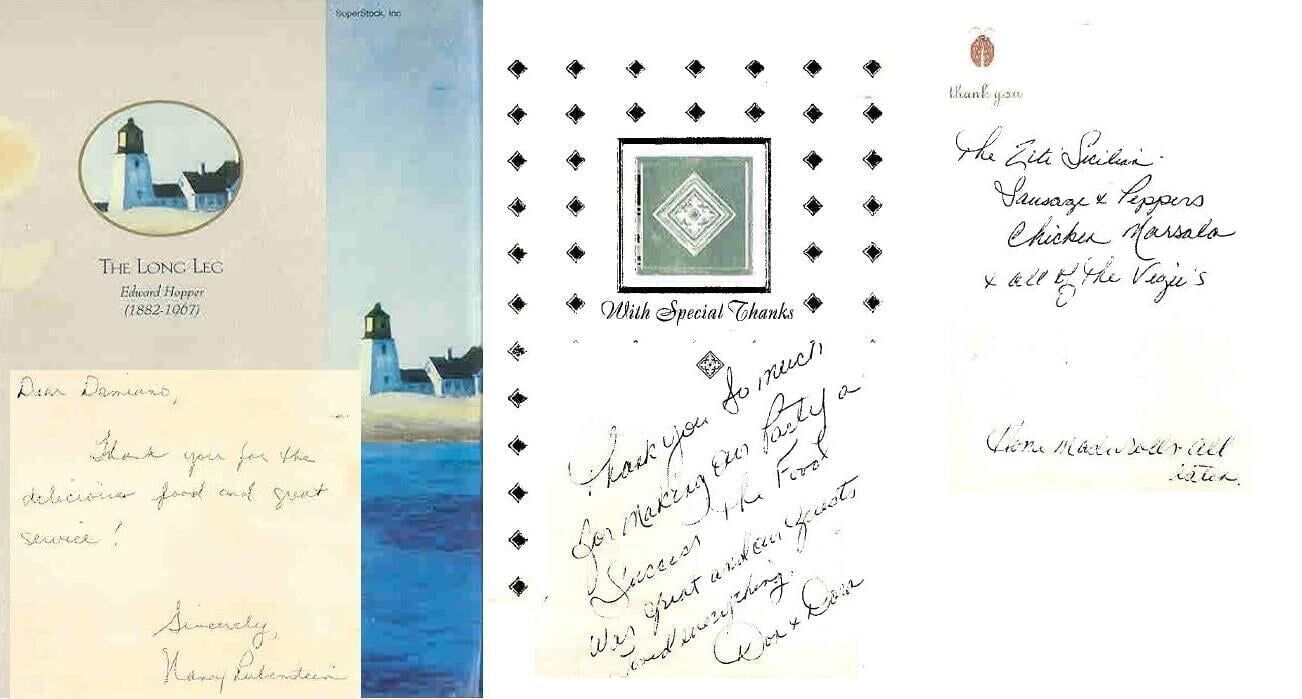 SuperStock, Inc
THE LONG LEG
Edward Hopper
(1882-1967)
Dear Damiano,
Thank you for the
delicious food and great
service!
Sincerely,
Nancy Rubenstein
With Special Thanks
Thank you so much
for making our Party a
Success The Food
was great and our guests
loved everything.
Don &
thank you
The Ziti Sicilian
Sausage & Peppers
Chicken Marsala
& all of the Vegie's
Home Made Rolls all
eaten.